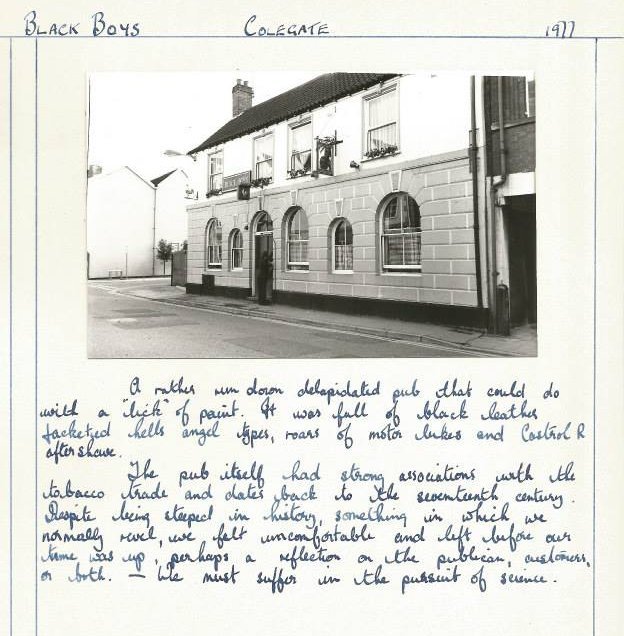 BLACK BOYS COLEGATE 1977
A rather run down delapidated pub that could do
with a "lick" of paint. It was full of black leather
jacketted hells angel types, roars of motor bikes and Castrol R
after shave.
The pub itself had strong associations with the
tobacco trade and dates back to the seventeenth century.
Despite being steeped in history, something in which we
normally revel, we felt uncomfortable and left before our
time was up, perhaps a reflection on the publican, customers,
or both. — We must suffer in the pursuit of science.